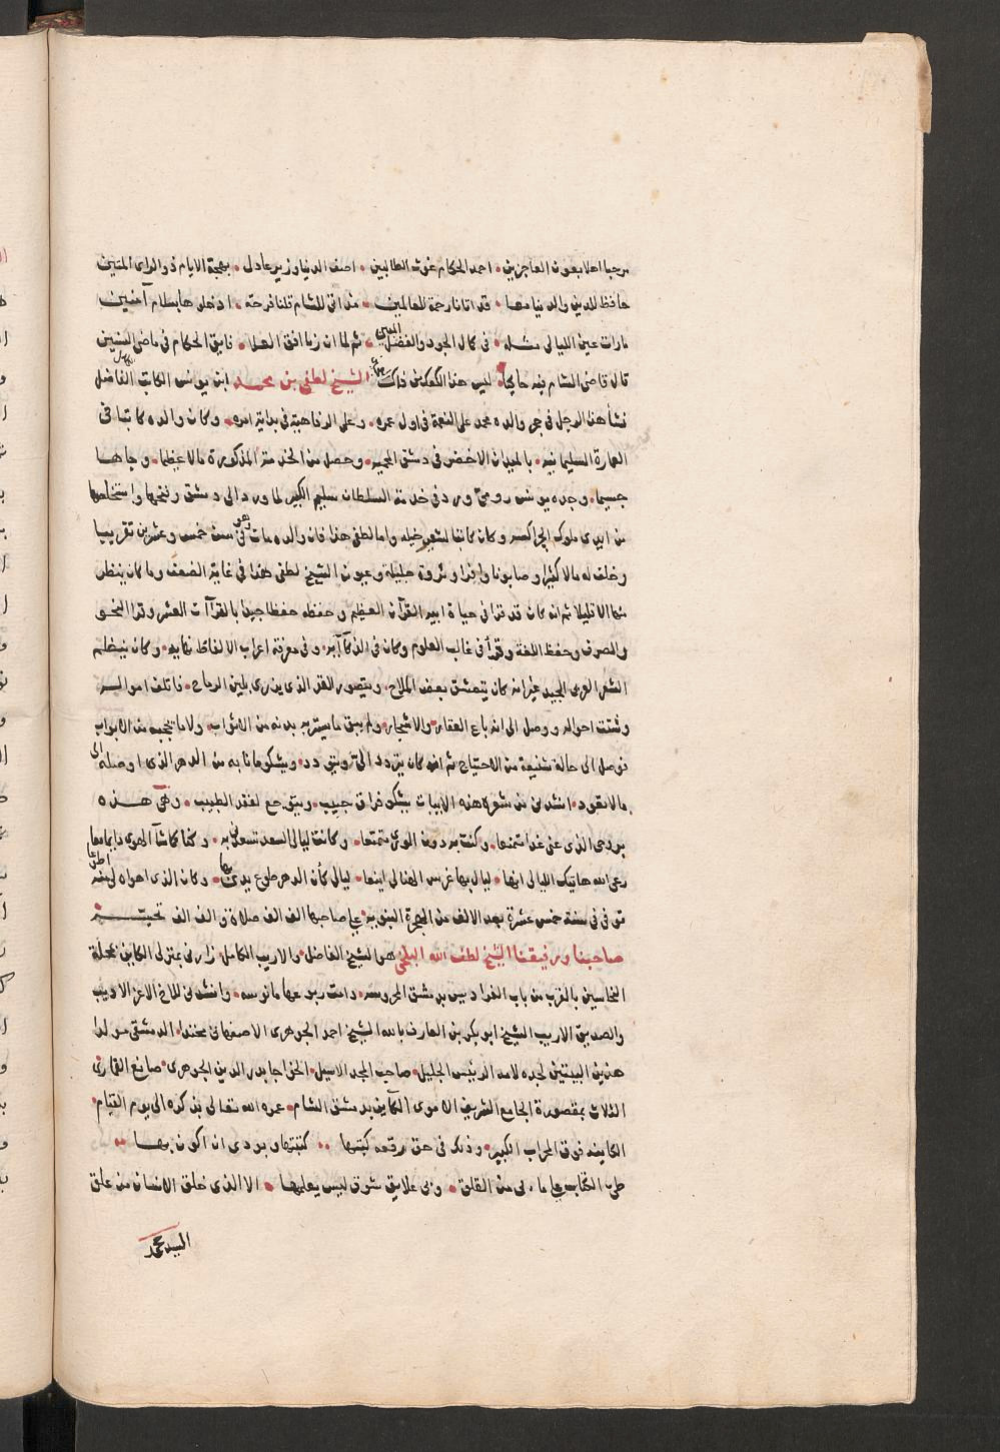 مرحبا اهلا بعون العاجزين • احمد الحكام غوث الطالبين • اصف الدنيا وزير عادل • بهجة الايام ذو الراى المتين
حافظ للدين والدنيا معا • قد اتانا رحمة للعالمين • مذ اتى للشام قلنا فرحة • ادخلوها بسلام آمنين
مارات عين الليالى مثله • فى كمال الجود والفضل المبين • ثم لما ان زها افق العلا • فايق الحكام فى ماضى السنين
قال قاضى الشام فيه حاكيا • ليس هذا الكعك من ذاك العجين الشيخ لطفى بن محمد ابن يونس الكاتب الفاضل الكامل
نشأ هذا الرجل فى حجر والده محمد على النعمة فى اول عمره • وعلى الرفاهية فى بداية امره • وكان والده كاتبا فى
العمارة السليمانية • بالميدان الاخضر فى دمشق المحمية • وحصل من الخدمة المذكورة مالا عظيما • وجاها
جسيما • وجده يونس رومى ورد فى خدمة السلطان سليم الكبير لما ورد الى دمشق وفتحها واستخلصها
من ايدى ملوك الچراكسة وكان كاتبا لشعير خيله واما لطفى هذا فان والده مات وهو فى سنه خمس وعشرين تقريبا
وخلف له مالا كثيرا وصابونا وافرا وثروة جليلة وعيون الشيخ لطفى هذا فى غاية الضعف وما كان ينظر
منها الا قليلا ثم انه كان قد قرا فى حياة ابيه القرآن العظيم وحفظه حفظا جيدا بالقرآآت العشر وقرا النحو
والصرف وحفظ اللغة وقرأ فى غالب العلوم وكان فى الذكآ آية • وفى معرفة اعراب الالفاظ نهايه • وكان ينظم
الشعر العربى الجيد غير انه كان يتعشق بعض الملاح • ويتصور القد الذى يزرى بلين الرماح • فاتلف امواله
وشتت احواله ووصل الى انه باع العقار • والاشجار • ولم يبق ما يستر به بدنه من الاثواب • ولا ما يحجبه من الابواب
فوصل الى حالة شنيعة من الاحتياج ثم انه كان يتردد الىّ ويتودد • ويشكو ما نابه من الدهر الذى اوصله الى
مالا يعود • انشدنى من شعره هذه الابيات يشكو فراق حبيب • ويتوجع لفقد الطبيب • وهى هذه
بروحى الذى عنى غدا متمنعا • وكنت به دون الورى متمتعا • وكانت ليالى السعد تسعفنى به • وكنا كما شآ الهوى دايما معا
رعى الله هاتيك الليالى انها • ليال بها غرس الهنا لى اينعا • ليالى كأن الدهر طوع يدى بها • وكان الذى اهواه لى فيه اطوعا
توفى فى سنة خمس عشرة بعد الالف من الهجرة النبويه على صاحبها الف الف صلاة والف الف تحية
صاحبنا ورفيقنا الشيخ لطف الله البلخى هو الشيخ الفاضل • والاريب الكامل • زارنى بمنزلى الكاين بمحلة
النحاسين بالقرب من باب الفراديس بدمشق المحروسه • دامت ربوعها مانوسه • وانشدنى للاخ الاعز الاديب
والصديق الاريب الشيخ ابو بكر بن العارف بالله الشيخ احمد الجوهرى الاصفهانى محتدا • الدمشقى مولدا
هذين البيتين لجده لامه الرئيس الجليل • صاحب المجد الاسيل • الخواجا بدر الدين الجوهرى • صانع القمارى
الثلاث بمقصورة الجامع الشريف الاموى الكآين بدمشق الشام • عمره الله تعالى بذكره الى يوم القيام •
الكاينة فوق المحراب الكبير • وذلك فى حق رقعة كتبها •• كتبتها وبودى ان اكون بها ••
طى الكتاب على ما بى من القلق • وبى علايق شوق ليس يعلمها • الا الذى خلق الانسان من علق
السيد محمد